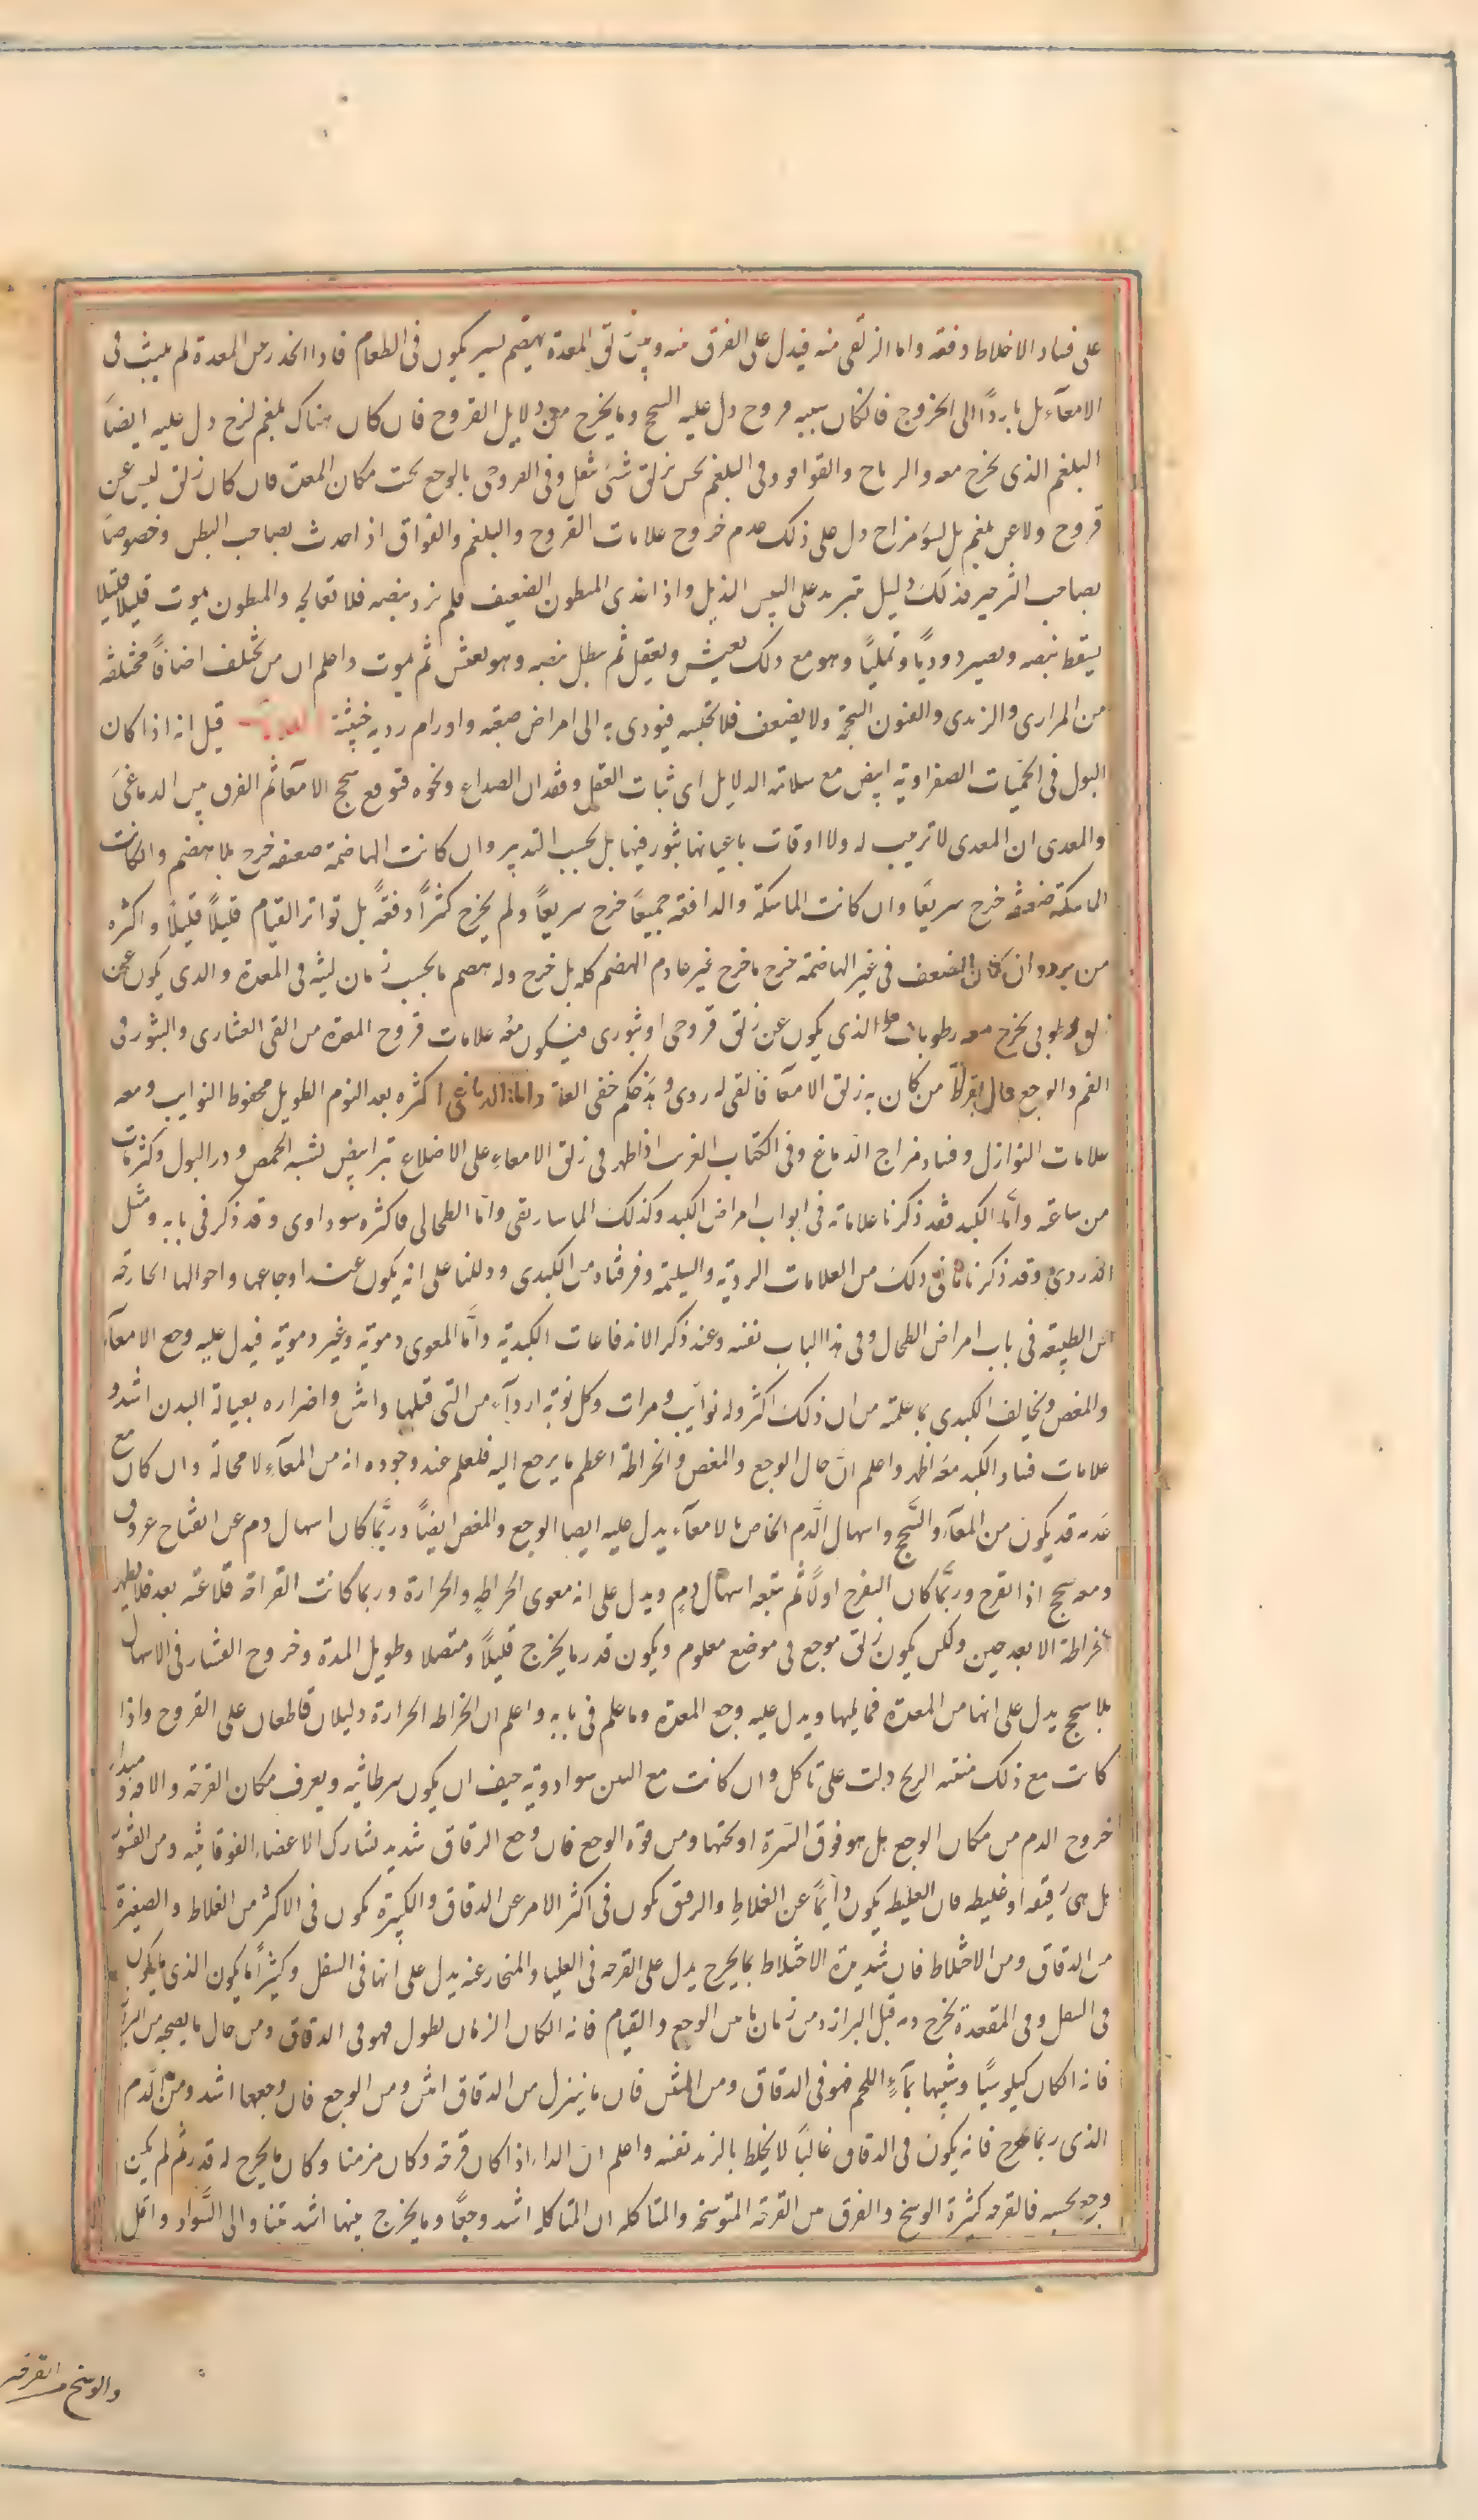 على فساد الاخلاط دفعة واما الزلقى منه فيدل على الفرق منه وبين زلق المعدة بهضم يسير يكون فى الطعام فاذا انحدر من المعدة لم يلبث فى
الامعآء بل بادر الى الخروج فان كان سببه قروح دل عليه السحج وما يخرج من دلايل القروح فان كان هناك بلغم لزج دل عليه ايضاً
البلغم الذى يخرج معه والرياح والقراقر وفى البلغم يحس بزلق شئ ثقل وفى القروحى بالوجع تحت مكان المعدة فان كان زلق ليس عن
قروح ولا عن بلغم بل لسوء مزاج دل على ذلك عدم خروج علامات القروح والبلغم والفواق اذا حدث بصاحب البطن وخصوصاً
بصاحب الزحير فذلك دليل على اليبس الذبل واذا غذى المبطون الضعيف فلم يزد نبضه فلا تعالجه والمبطون يموت قليلا قليلا
يسقط نبضه ويصير دودياً ونملياً وهو مع ذلك يعيش ويعقل ثم يبطل نبضه وهو يعيش ثم يموت واعلم ان من يختلف اصنافاً مختلفة
من المرارى والزبدى والفنون السمجة ولا يضعف فلا تحبسه فيودى به الى امراض صعبة واورام ردية خبيثة قيل انه اذا كان
البول فى الحميات الصفراوية ابيض مع سلامة الدلايل اى ثبات العقل وفقدان الصداع ونحوه فتوقع سحج الامعآ ثم الفرق بين الدماغى
والمعدى ان المعدى لا ترتيب له ولا اوقات باعيانها يثور فيها بل بحسب التدبير وان كانت الهاضمة ضعيفة خرج بلا هضم وان كانت
الماسكة ضعيفة خرج سريعاً وان كانت الماسكة والدافعة جميعاً خرج سريعاً ولم يخرج كثيراً دفعةً بل تواتر القيام قليلاً قليلاً واكثره
من برد وان كان الضعف فى غير الهاضمة خرج ما خرج غير عادم الهضم كله بل خرج وله هضم ما بحسب زمان لبثه فى المعدة والذى يكون عن
زلق رطوبى يخرج معه رطوبات والذى يكون عن زلق قروحى او بثورى فيكون معه علامات قروح المعدة من القى القشارى والبثور فى
الفم والوجع قال بقراط من كان به زلق الامعآ فالقى له ردى وهذ حكم خفى العلة واما الدماغى اكثره بعد النوم الطويل محفوظ النوايب ومعه
علامات النوازل وفساد مزاج الدماغ وفى الكتاب الغريب اذا ظهر فى زلق الامعاء على الاضلاع بثر ابيض يشبه الحمص ودر البول وكثر مات
من ساعته واما الكبد فقد ذكرنا علاماته فى ابواب امراض الكبد وكذلك الماساريقى واما الطحالى فاكثره سوداوى وقد ذكر فى بابه ومثل
الدردى وقد ذكرنا ما فى ذلك من العلامات الردية والسليمة وفرقناه من الكبدى ودللنا على انه يكون عند اوجاعها واحوالها الخارجة
عن الطبيعة فى باب امراض الطحال وفى هذا الباب نفسه وعند ذكر الاندفاعات الكبدية واما المعوى دموية وغير دموية فيدل عليه وجع الامعآء
والمغص ويخالف الكبدى بما علمته من ان ذلك اكثر وله نوايب ومرات وكل نوبة اردآء من التى قبلها وانتن واضراره بعبالة البدن اشد و
علامات فساد الكبد معه اظهر واعلم ان حال الوجع والمغص والخراطة اعظم ما يرجع اليه فلعلم عند وجوده انه من المعآء لا محالة وان كان مع
عدمه قد يكون من المعآء والسحج واسهال الدم الخاص بالامعآء يدل عليه ايضا الوجع والمغص ايضاً وربما كان اسهال دم عن انفتاح عروق
ومعه سحج اذا تقرح وربما كان التقرح اولاً ثم تبعه اسهال دم ويدل على انه معوى الخراطة والحرارة وربما كانت القراحة قلاعية بعد فلا يظهر
الخراطة الا بعد حين ولكن يكون زلق موجع فى موضع معلوم ويكون قدر ما يخرج قليلاً ومتصلا وطويل المدة وخروج القشار فى الاسهال
بلا سحج يدل على انها من المعدة فما يليها ويدل عليه وجع المعدة وما علم فى بابه واعلم ان الخراطه الحرارة دليلان قاطعان على القروح واذا
كانت مع ذلك منتنه الريح دلت على تاكل وان كانت مع النتن سوادوية خيف ان يكون سرطانية ويعرف مكان القرحة والافة ومبداء
خروج الدم من مكان الوجع بل هو فوق السرة او تحتها ومن قوة الوجع فان وجع الرقاق شديد لتشارك الاعضاء الفوقانيه ومن القشور
بل هى رقيقه او غليظه فان الغليظه يكون دايماً عن الغلاظ والرقيق يكون فى اكثر الامر عن الدقاق والكبيرة يكون فى الاكثر من الغلاظ والصغيرة
من الدقاق ومن الاختلاط فان شدة الاختلاط بما يخرج يدل على القرحه فى العليا والمنحاز عنه يدل على انها فى السفل وكثيراً ما يكون الذى يكون
فى السفل وفى المقعدة يخرج دمه قبل البراز ومن زمان ما بين الوجع والقيام فانه ان كان الزمان يطول فهو فى الدقاق ومن حال ما يصحبه من البراز
فانه ان كان كيلوسيًا وشبيها بمآء اللحم فهو فى الدقاق ومن النتن فان ما ينزل من الدقاق انتن ومن الوجع فان وجعها اشد ومن الدم
الذى ربما خرج فانه يكون فى الدقاق غالباً لا يختلط بالزبد نفسه واعلم ان الداء اذا كان قرحة وكان مزمنا وكان ما يخرج له قدر ثم لم يكن
وجع بحسبه فالقرحه كثيرة الوسخ والفرق بين القرحة المتوسخة والمتاكله ان المتاكله اشد وجعًا وما يخرج منها اشد نتنا والى السواد واقل
والوسخ